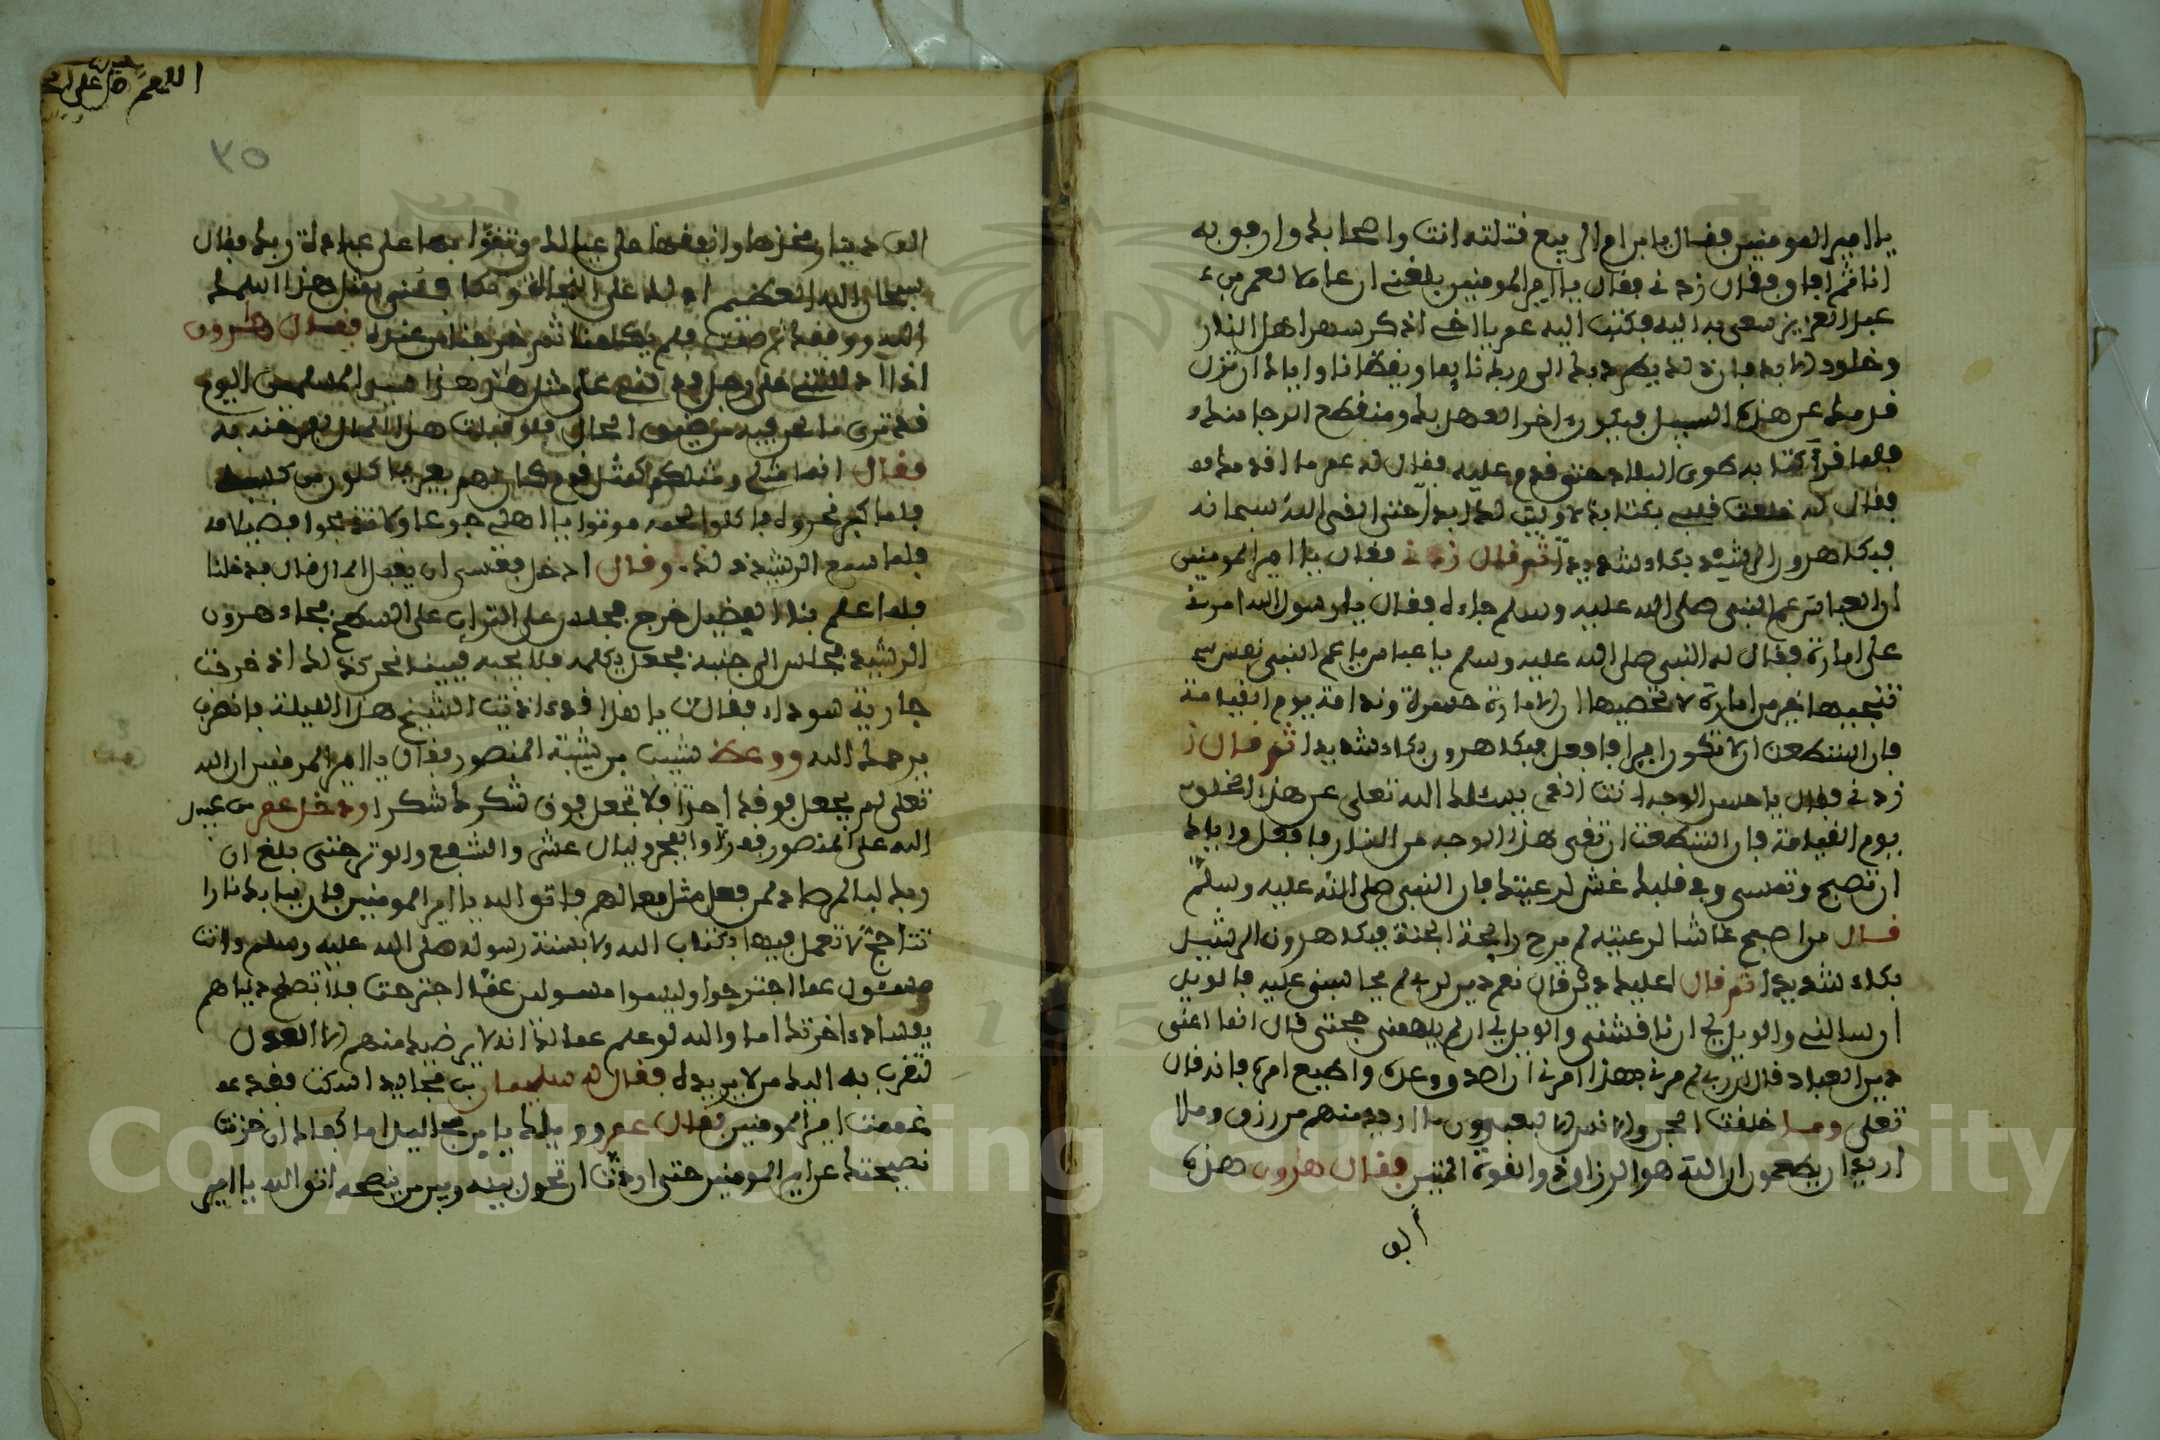 يا امير المومنين فقال يا ابن ام الربيع قتلته انت واصحابك وارفق به
انا ثم افاق فقال زدني فقال يا امير المومنين بلغني ان عاملا لعمر بن
عبد العزيز شكى به اليه فكتب اليه عمر يا اخي اذكر سهر اهل النار
وخلود الابد فان ذلك يطرد بك الى ربك نايما ويقظانا واياك ان تزل
قدمك عن هذه السبيل فيكون اخر العهد بك ومنقطع الرجا منك
فلما قرأ كتابه طوى البلاد حتى قدم عليه فقال له عمر ما اقدمك
فقال له خلعت قلبي بكتابك لا وليت لك ابدا حتى القى الله سبحانه
فبكى هرون الرشيد بكاء شديدا ثم قال زدني فقال يا امير المومنين
ان العباس عم النبي صلى الله عليه وسلم جاءه فقال يا رسول الله امرني
على امارة فقال له النبي صلى الله عليه وسلم يا عباس يا عم النبي نفس
تنجيها خير من امارة لا تحصيها ان الامارة حسرة وندامة يوم القيامة
فان استطعت ان لا تكون اميرا فافعل فبكى هرون بكاء شديدا ثم قال
زدني فقال يا حسن الوجه انت الذي يسئلك الله تعلى عن هذا الخلق
يوم القيامة فان استطعت ان تقي هذا الوجه من النار فافعل واياك
ان تصبح وتمسي وفي قلبك غش لرعيتك فان النبي صلى الله عليه وسلم
قال من اصبح غاشا لرعيته لم يرح رايحة الجنة فبكى هرون الرشيد
بكاء شديدا ثم قال اعليك دين قال نعم دين لربي لم يحاسبني عليه فالويل
ان سالني والويل لي ان ناقشني والويل لي ان لم يلهمني حجتي قال انما اعني
دين العباد قال ان ربي لم يمرني بهذا امرني ان اصدق وعده واطيع امره فانه قال
تعلى وما خلقت الجن والانس الا ليعبدون ما اريد منهم من رزق وما
اريد ان يطعمون ان الله هو الرزاق ذو القوة المتين فقال هرون هذه
الف
اللهم صل على
٣٥
الف دينار فخذها وانفقها على عيالك وتقوا بها على عبادة ربك فقال
سبحان الله العظيم ادلك على النجاة وتكافئني بمثل هذا سلمك
الله ووفقك ثم صمت فلم يكلمنا ثم خرجنا من عنده فقال هرون
اذا دللتني على رجل فدلني على مثل هذا هذا سيد المسلمين اليوم
قد ترى ما نحن فيه من ضيق الحال فلو قبلت هذا المال
فقال انما مثلي ومثلكم كمثل قوم كان لهم بعير ياكلون من كسبه
فلما كبر نحروه فاكلوا لحمه موتوا يا اهلي جوعا ولا تذبحوا فضيلا
فلما سمع الرشيد ذلك وقال ادخل فعسى ان يقبل المال قال فدخلنا
فلما علم بنا الفضيل خرج فجلس على التراب على السطح فجاء هرون
الرشيد فجلس الى جنبه فجعل يكلمه فلا يجيبه فبينما نحن كذلك اذ خرجت
جارية سوداء فقالت يا هذا قد اذيت الشيخ هذه الليلة فانصرف
يرحمك الله ووعظ شبيب بن شيبة المنصور فقال يا امير المومنين ان الله
تعلى لم يجعل فوقك احدا فلا تجعل فوق شكرك شكرا ودخل عمر بن عبيد
الله على المنصور فقرأ والفجر وليال عشر والشفع والوتر حتى بلغ ان
ربك لبالمرصاد لمن فعل مثل فعالهم فاتق الله يا امير المومنين فان ببابك نارا
تتاجج لا تعمل فيها بكتاب الله ولا بسنة رسوله صلى الله عليه وسلم وانت
مسئول عما اجترحوا وليسوا مسولين عما اجترحت فلا تصلح دنياهم
بفساد ءاخرتك اما والله لو علم عمالك انه لا يرضيك منهم الا العدل
لتقرب به اليك من لا يريده فقال له سليمان بن مجالد اسكت فقد
غممت امير المومنين فقال عمر ويلك يا بن مجالد اما كفاك ان خزنت
نصيحتك عن امير المومنين حتى اردت ان تحول بينه وبين من ينصحه اتق الله يا امير